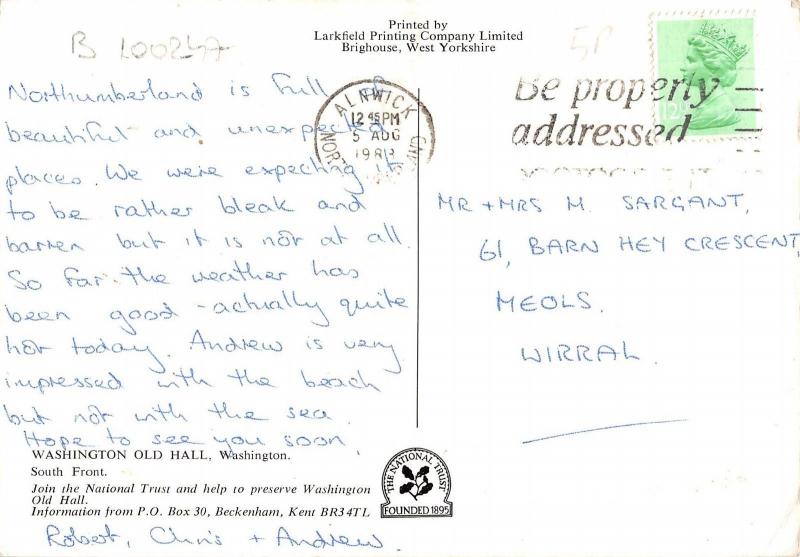 Printed by
Larkfield Printing Company Limited
Brighouse, West Yorkshire
B 100247
5P
Northumberland is full of
beautiful and unexpected
places. We were expecting it
to be rather bleak and
barren but it is not at all.
So far the weather has
been good - actually quite
hot today. Andrew is very
impressed with the beach
but not with the sea.
Hope to see you soon,
WASHINGTON OLD HALL, Washington.
South Front.
Join the National Trust and help to preserve Washington
Old Hall.
Information from P.O. Box 30, Beckenham, Kent BR3 4TL
Robert, Chris + Andrew.
THE NATIONAL TRUST
FOUNDED 1895
ALNWICK
12 45 PM
5 AUG
Be properly
addressed
MR + MRS M. SARGANT,
61, BARN HEY CRESCENT,
MEOLS.
WIRRAL.